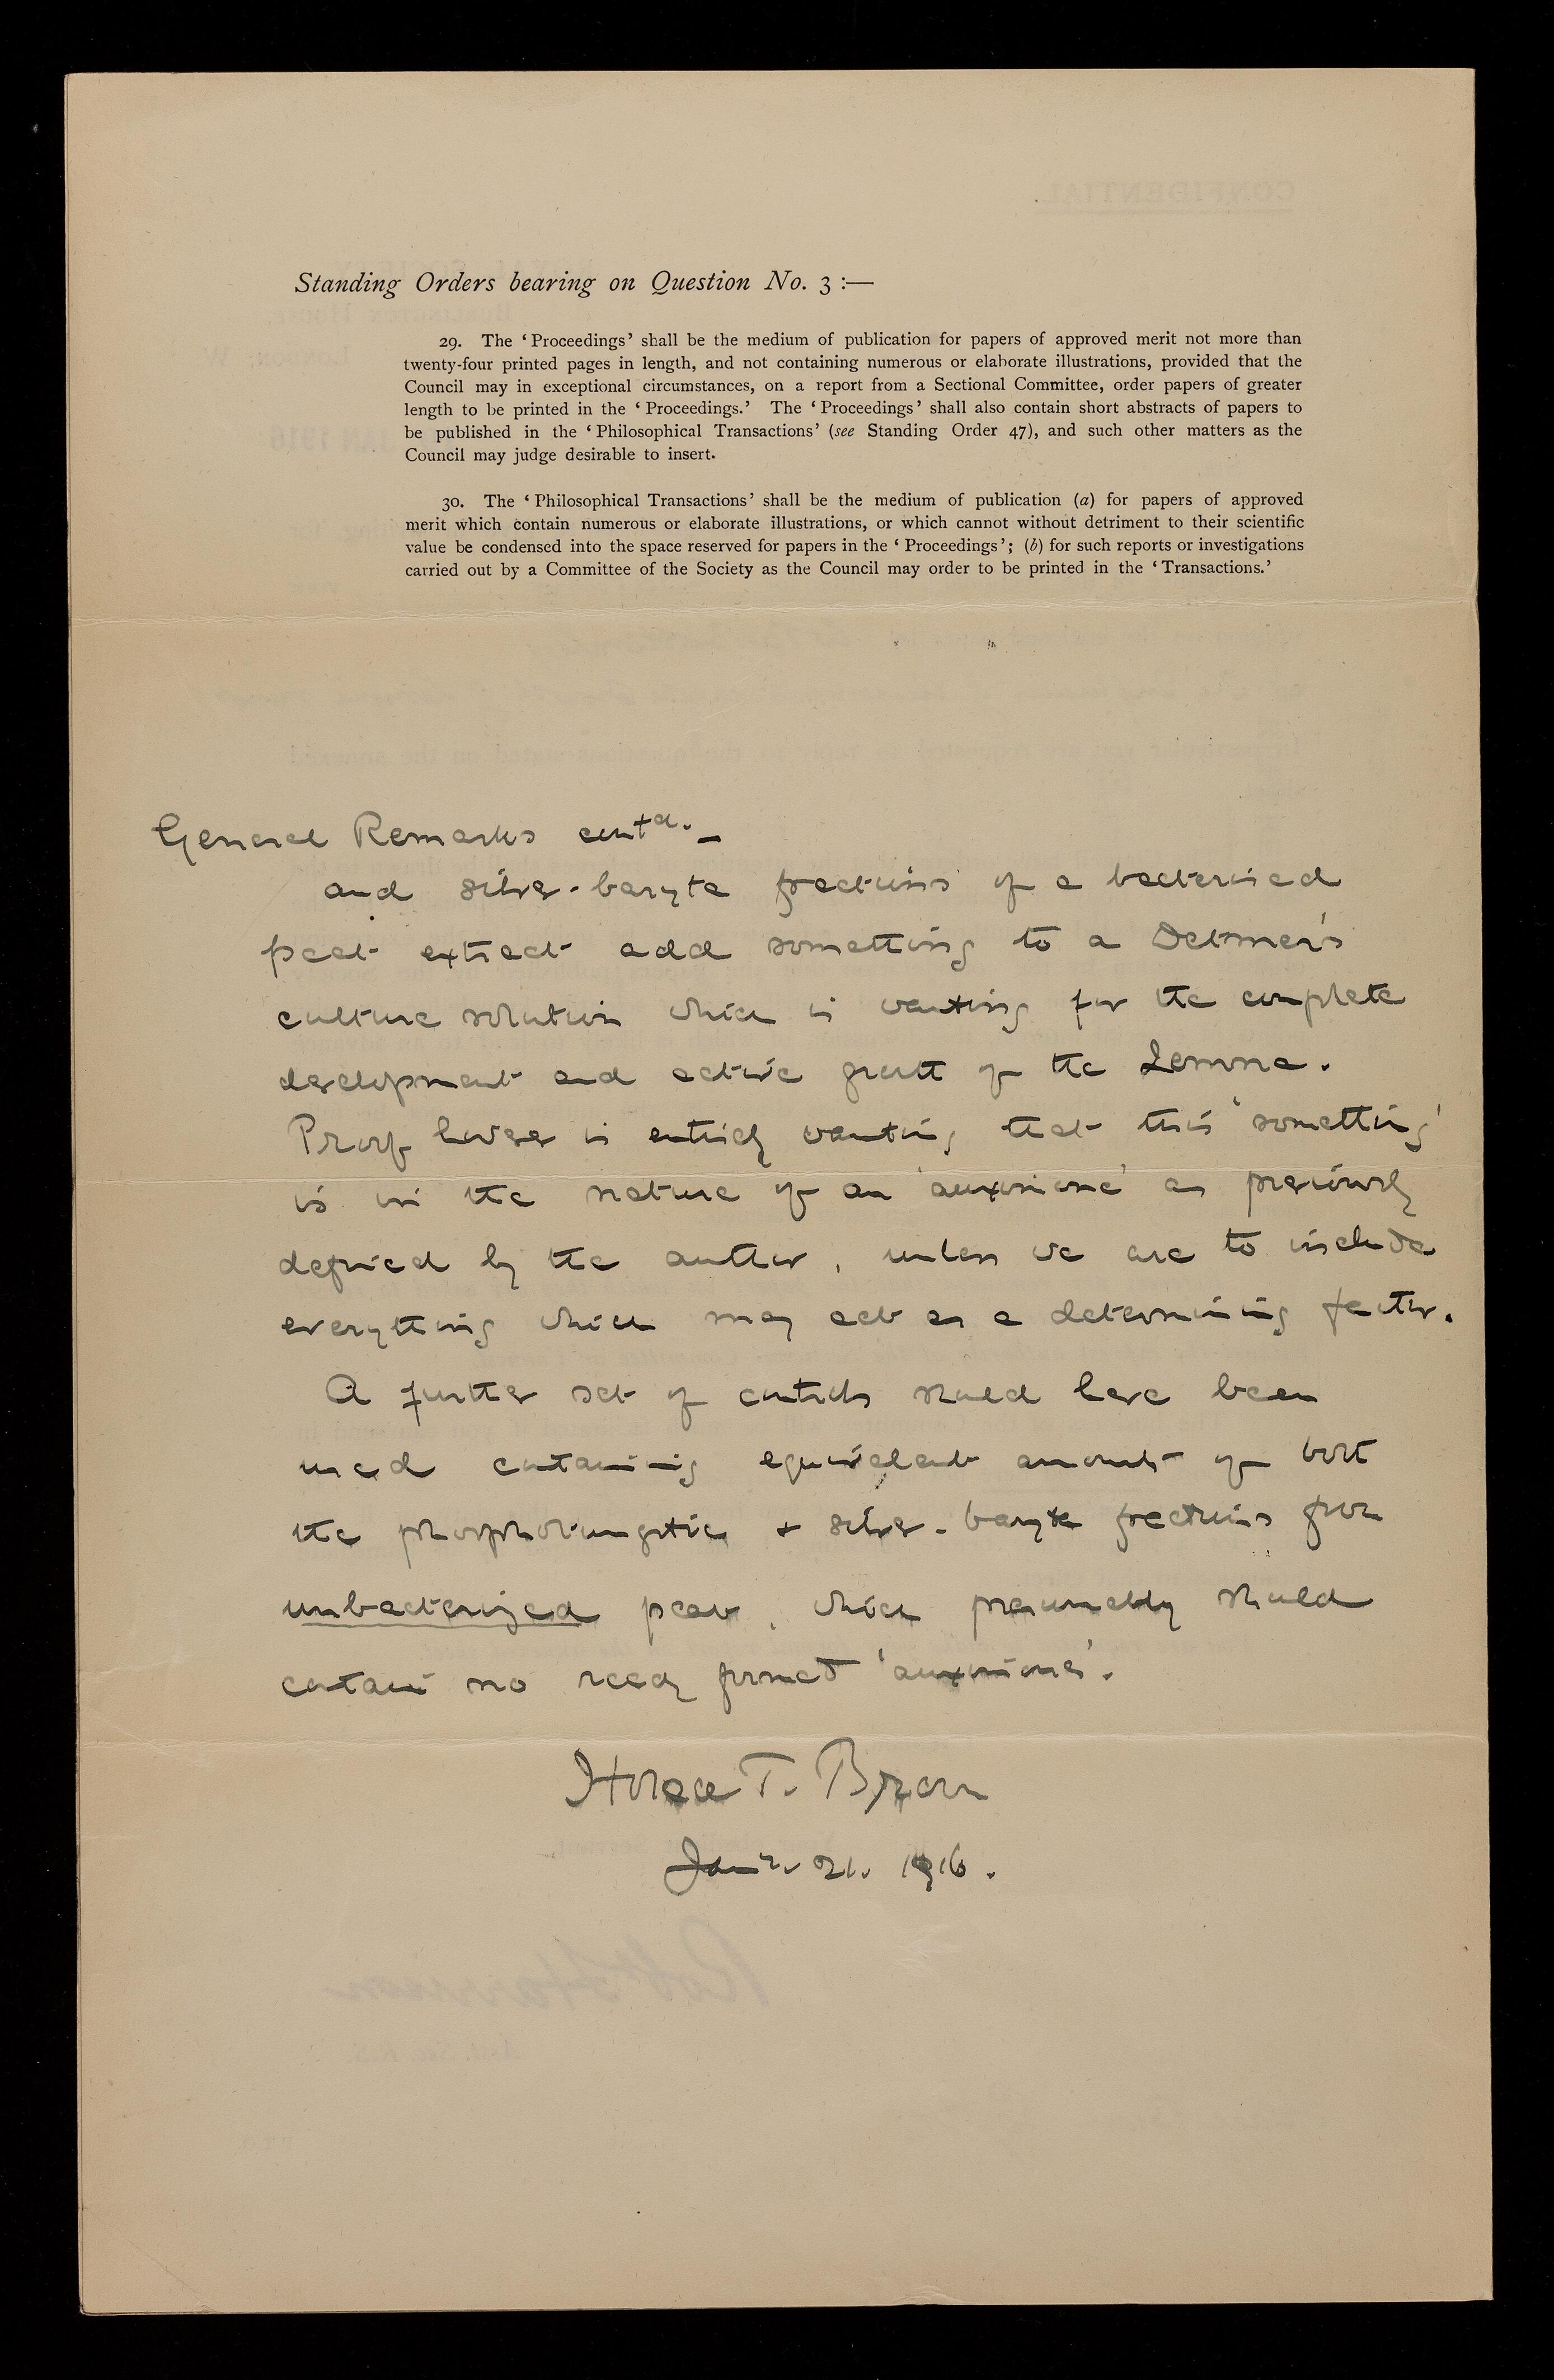 Standing Orders bearing on Question No. 3 :—
29. The ‘Proceedings’ shall be the medium of publication for papers of approved merit not more than
twenty-four printed pages in length, and not containing numerous or elaborate illustrations, provided that the
Council may in exceptional circumstances, on a report from a Sectional Committee, order papers of greater
length to be printed in the ‘Proceedings.’ The ‘Proceedings’ shall also contain short abstracts of papers to
be published in the ‘Philosophical Transactions’ (see Standing Order 47), and such other matters as the
Council may judge desirable to insert.
30. The ‘Philosophical Transactions’ shall be the medium of publication (a) for papers of approved
merit which contain numerous or elaborate illustrations, or which cannot without detriment to their scientific
value be condensed into the space reserved for papers in the ‘Proceedings’; (b) for such reports or investigations
carried out by a Committee of the Society as the Council may order to be printed in the ‘Transactions.’
General Remarks contd. —
and silver-baryta fractions of a bacterised
peat extract add something to a Detmer's
culture solution which is wanting for the complete
development and active growth of the Lemna.
Proof however is entirely wanting that this ‘something’
is in the nature of an ‘auximone’ as previously
defined by the author, unless we are to include
everything which may act as a determining factor.
A further set of controls should have been
used containing equivalent amounts of both
the phosphotungstic & silver-baryta fractions from
unbacterized peat, which presumably should
contain no ready formed ‘auximones’.
Horace T. Brown
Jany. 21. 1916.